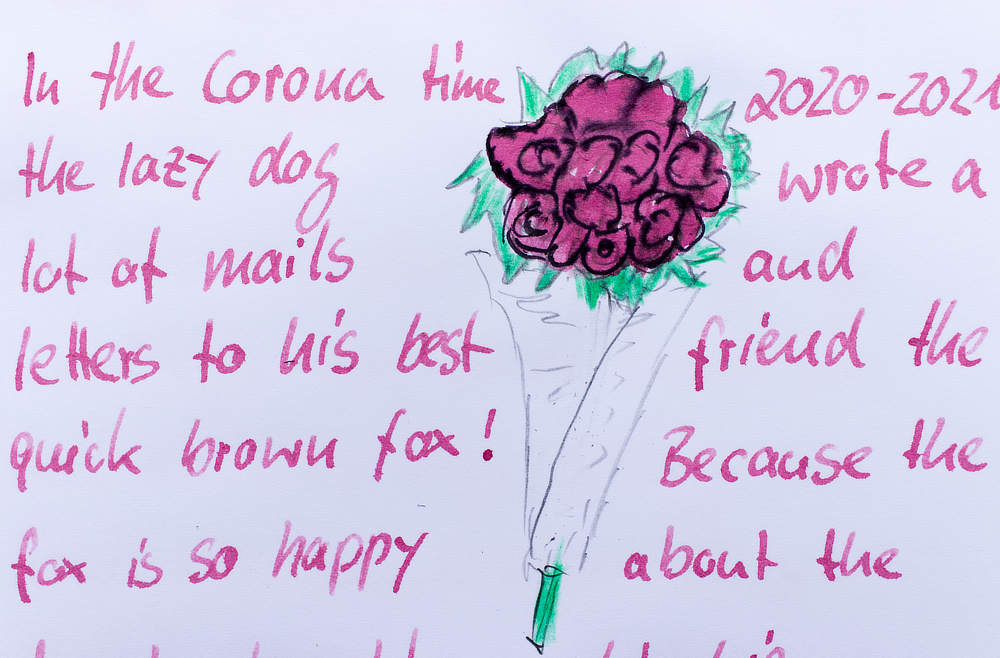 In the Corona time 2020-2021
the lazy dog wrote a
lot of mails and
letters to his best friend the
quick brown fox! Because the
fox is so happy about the